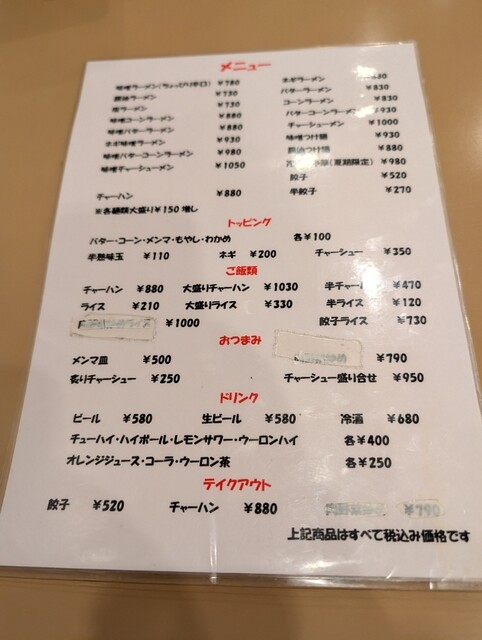 メニュー
味噌ラーメン(ちょっぴり辛口) ¥780
醤油ラーメン ¥730
塩ラーメン ¥730
味噌コーンラーメン ¥880
味噌バターラーメン ¥880
ネギ味噌ラーメン ¥930
味噌バターコーンラーメン ¥980
味噌チャーシューメン ¥1050
チャーハン ¥880
※各麺類大盛り¥150増し
ネギラーメン ¥830
バターラーメン ¥830
コーンラーメン ¥830
バターコーンラーメン ¥930
チャーシューメン ¥1000
味噌つけ麺 ¥930
醤油つけ麺 ¥880
(夏期限定) ¥980
餃子 ¥520
半餃子 ¥270
トッピング
バター・コーン・メンマ・もやし・わかめ 各¥100
半熟味玉 ¥110 ネギ ¥200 チャーシュー ¥350
ご飯類
チャーハン ¥880 大盛りチャーハン ¥1030 半チャーハン ¥470
ライス ¥210 大盛りライス ¥330 半ライス ¥120
¥1000 餃子ライス ¥730
おつまみ
メンマ皿 ¥500 ¥790
炙りチャーシュー ¥250 チャーシュー盛り合せ ¥950
ドリンク
ビール ¥580 生ビール ¥580 冷酒 ¥680
チューハイ・ハイボール・レモンサワー・ウーロンハイ 各¥400
オレンジジュース・コーラ・ウーロン茶 各¥250
テイクアウト
餃子 ¥520 チャーハン ¥880 ¥790
上記商品はすべて税込み価格です